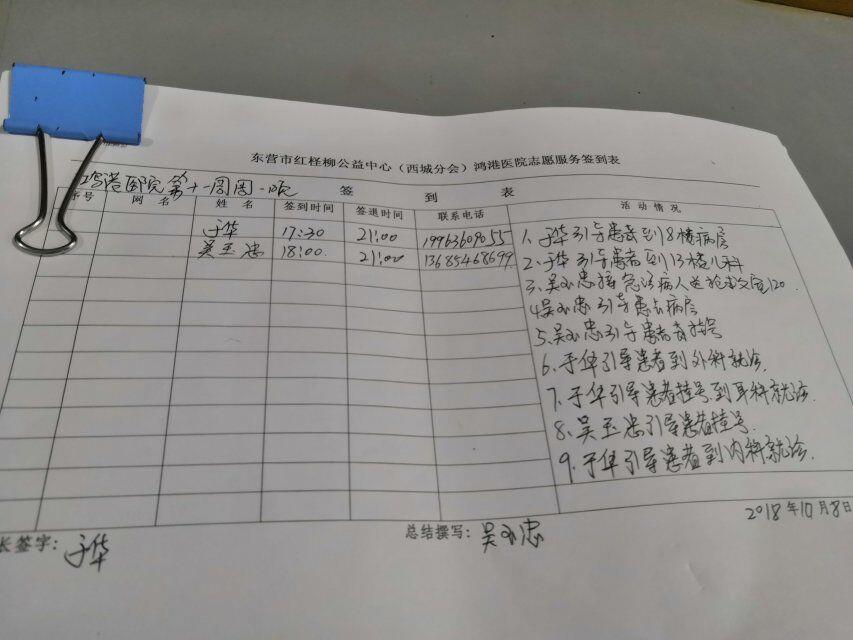 东营市红柽柳公益中心（西城分会）鸿港医院志愿服务签到表
鸿港医院第十一周周一晚 签 到 表
序号 网 名 姓 名 签到时间 签退时间 联系电话 活 动 情 况
于华 17:30 21:00 19963609055
吴玉忠 18:00 21:00 13685468699
1、于华引导患者到18楼病房
2、于华引导患者到13楼儿科
3、吴玉忠接急诊病人送抢救室120.
4、吴玉忠引导患者去病房
5、吴玉忠引导患者挂号
6、于华引导患者到外科就诊.
7、于华引导患者挂号,到耳科就诊.
8、吴玉忠引导患者挂号.
9、于华引导患者到内科就诊.
2018年10月8日
长签字：于华 总结撰写：吴玉忠